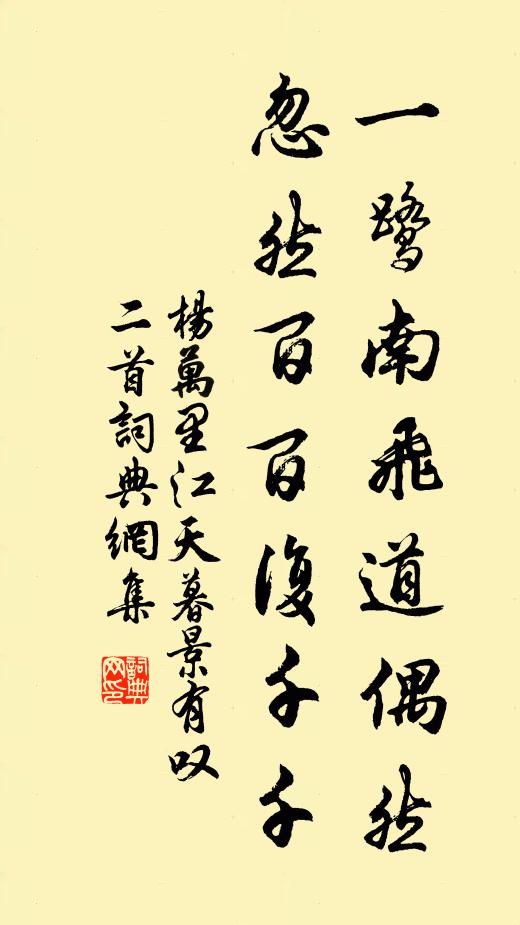 一鹭南飛道偶然
忽然百百復千千
楊萬里江天暮景有叹
二首詞典網集
詞典
网印